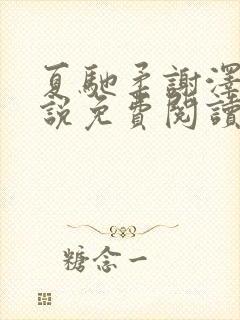 夏馳柔謝澤
說免費閱讀
糖念一